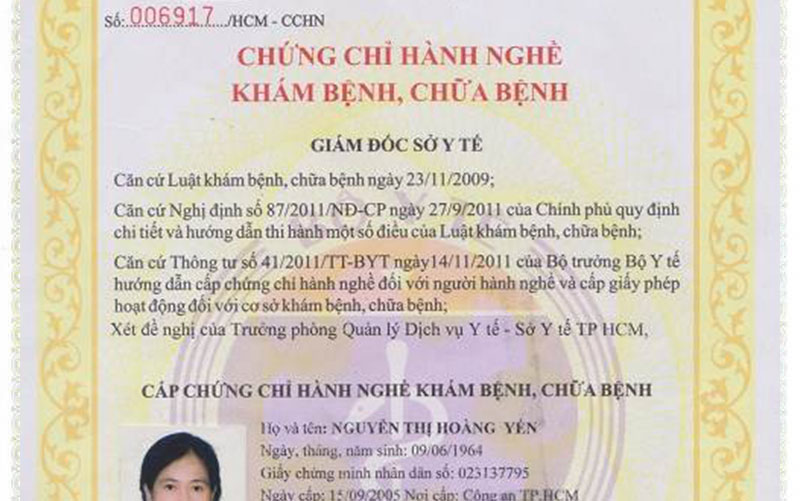 Số:..006917.../HCM - CCHN
CHỨNG CHỈ HÀNH NGHỀ
KHÁM BỆNH, CHỮA BỆNH
GIÁM ĐỐC SỞ Y TẾ
Căn cứ Luật khám bệnh, chữa bệnh ngày 23/11/2009;
Căn cứ Nghị định số 87/2011/NĐ-CP ngày 27/9/2011 của Chính phủ quy định
chi tiết và hướng dẫn thi hành một số điều của Luật khám bệnh, chữa bệnh;
Căn cứ Thông tư số 41/2011/TT-BYT ngày14/11/2011 của Bộ trưởng Bộ Y tế
hướng dẫn cấp chứng chỉ hành nghề đối với người hành nghề và cấp giấy phép
hoạt động đối với cơ sở khám bệnh, chữa bệnh;
Xét đề nghị của Trưởng phòng Quản lý Dịch vụ Y tế - Sở Y tế TP HCM,
CẤP CHỨNG CHỈ HÀNH NGHỀ KHÁM BỆNH, CHỮA BỆNH
Họ và tên: NGUYỄN THỊ HOÀNG YẾN
Ngày, tháng, năm sinh: 09/06/1964
Giấy chứng minh nhân dân số: 023137795
Ngày cấp: 15/09/2005 Nơi cấp: Công an TP.HCM